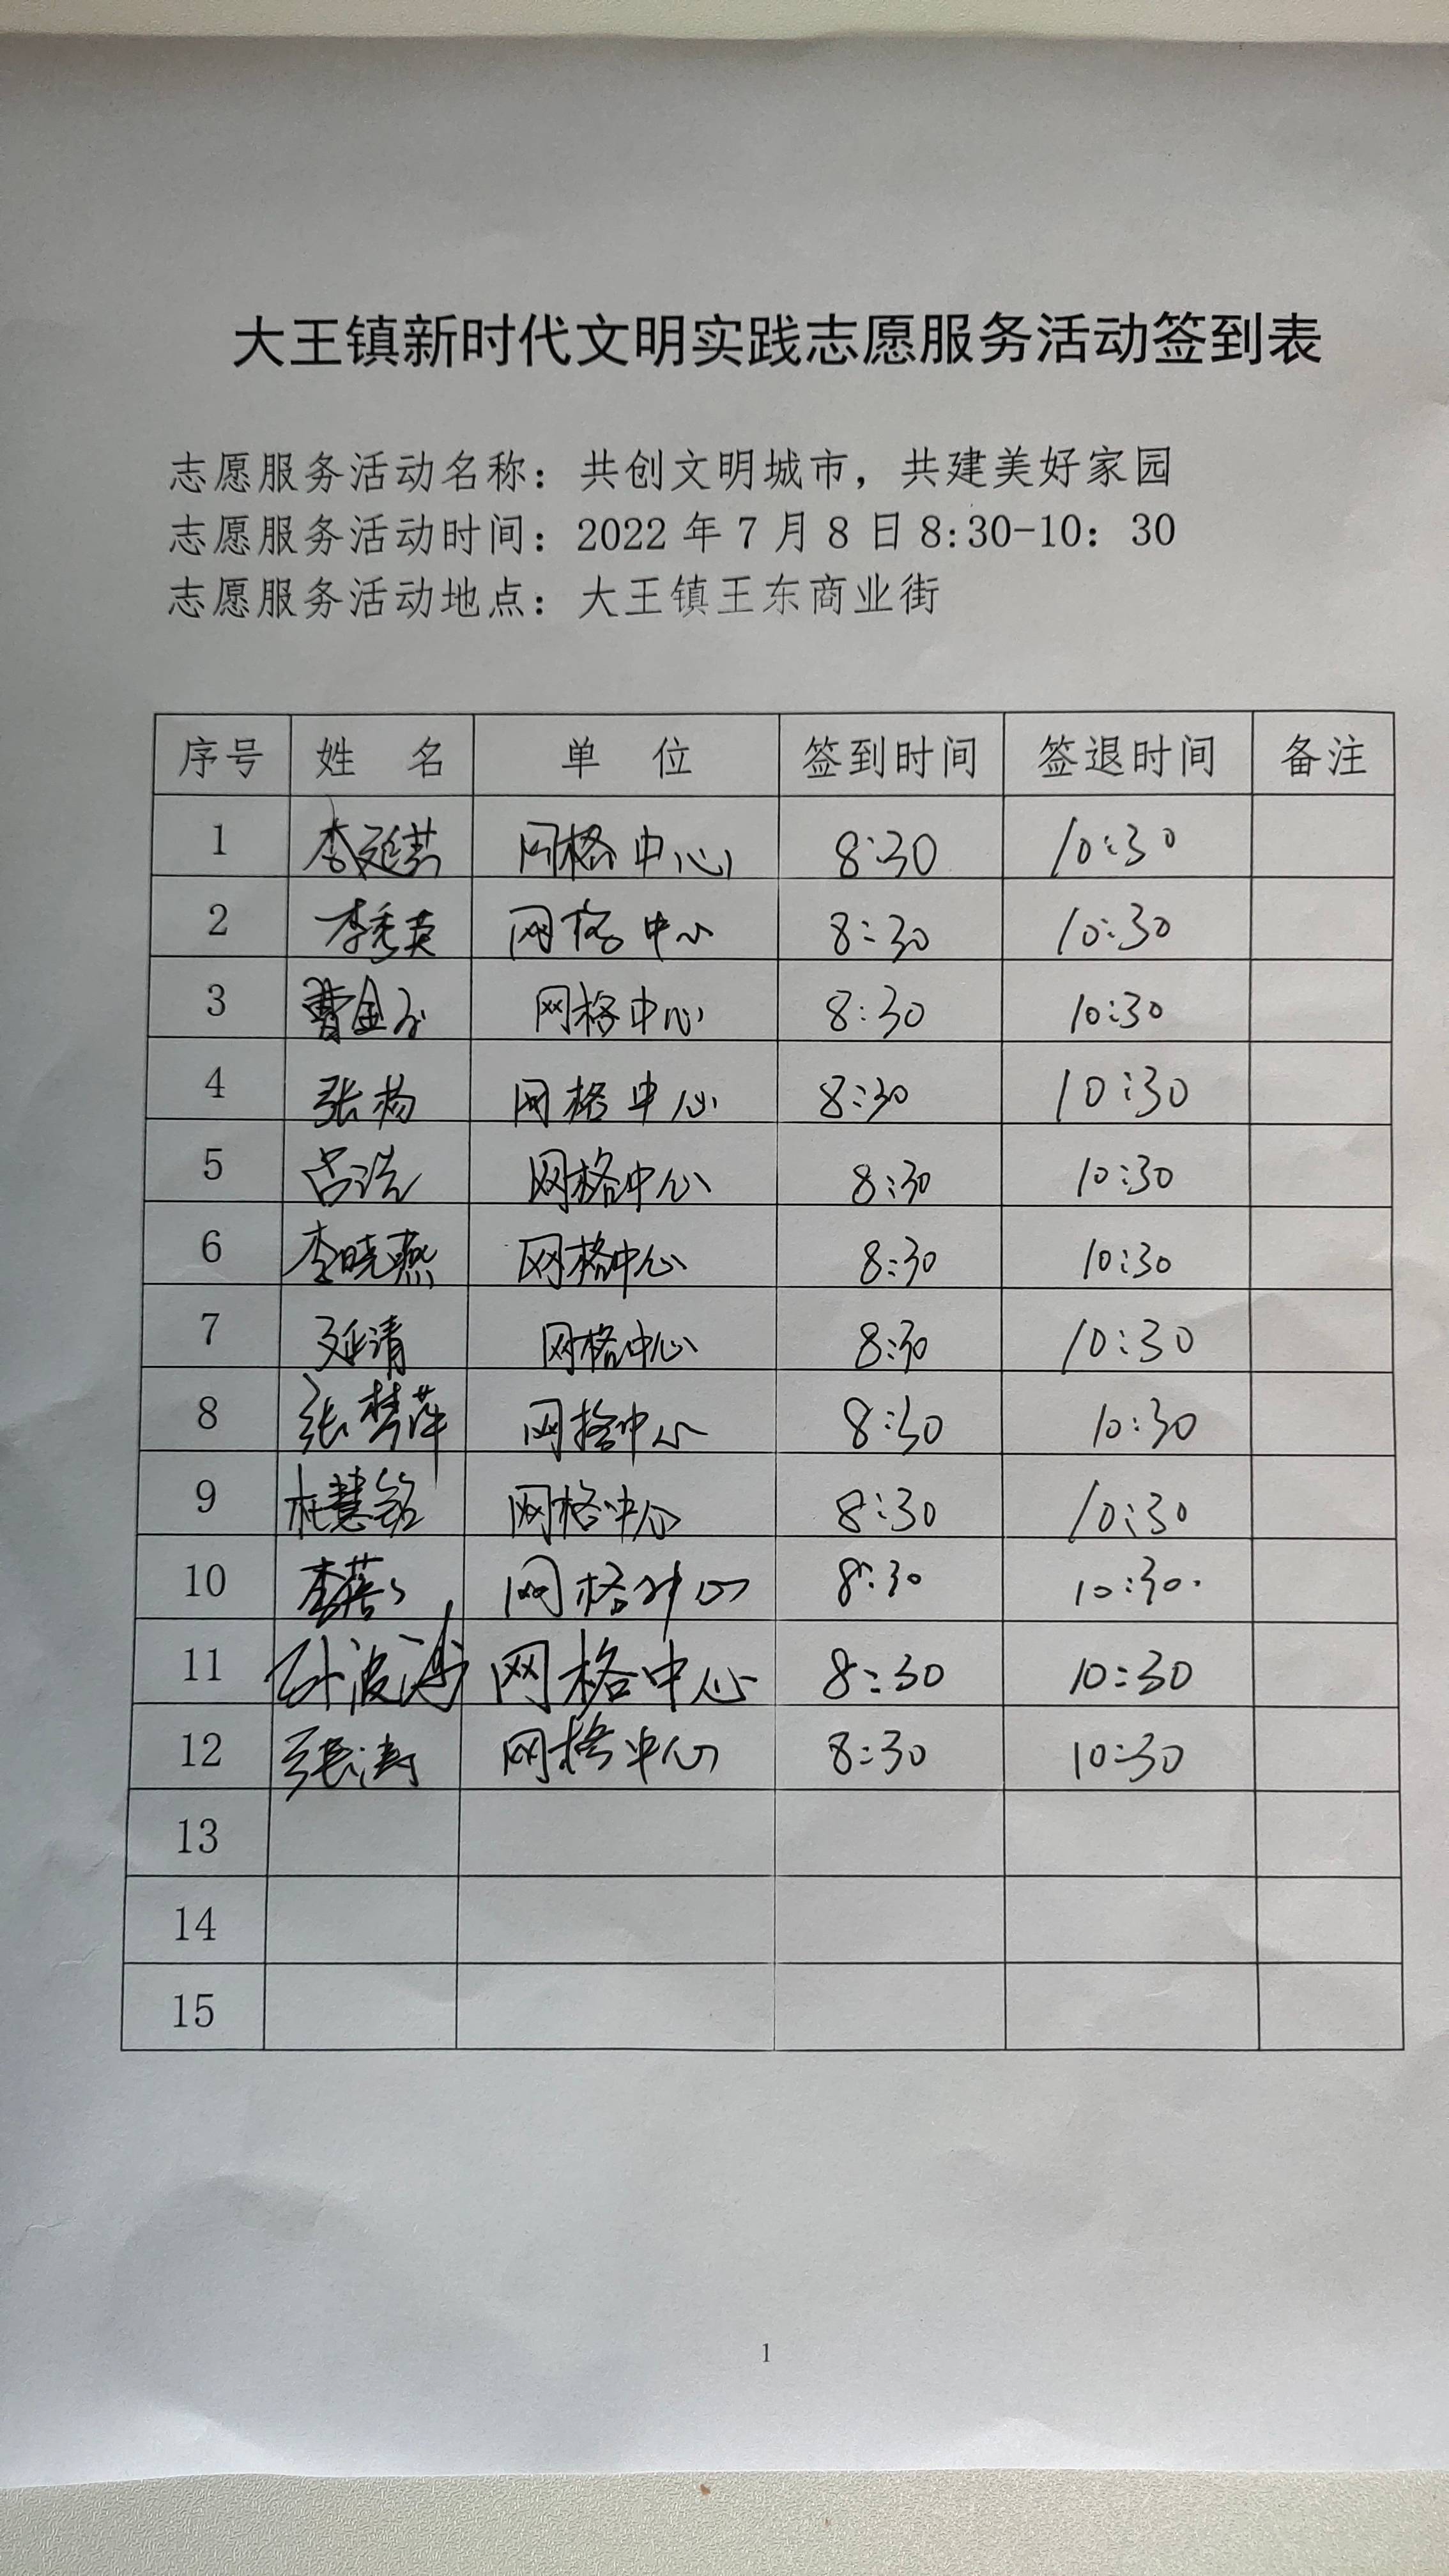 大王镇新时代文明实践志愿服务活动签到表
志愿服务活动名称：共创文明城市，共建美好家园
志愿服务活动时间：2022年7月8日8:30-10：30
志愿服务活动地点：大王镇王东商业街
序号 姓 名 单 位 签到时间 签退时间 备注
1 网格中心 8:30 10:30
2 李秀英 网格中心 8:30 10:30
3 网格中心 8:30 10:30
4 张杨 网格中心 8:30 10:30
5 吕浩 网格中心 8:30 10:30
6 李晓燕 网格中心 8:30 10:30
7 延清 网格中心 8:30 10:30
8 张梦萍 网格中心 8:30 10:30
9 杜慧铭 网格中心 8:30 10:30
10 网格中心 8:30 10:30.
11 网格中心 8:30 10:30
12 张涛 网格中心 8:30 10:30
13
14
15
1